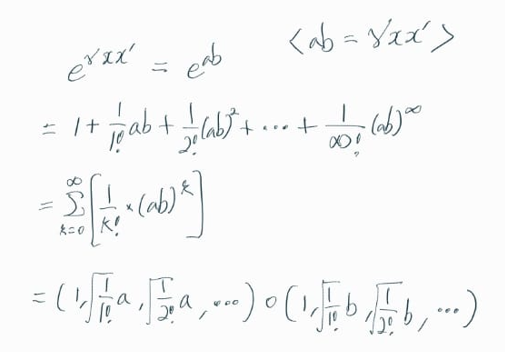 e^{γxx'} = e^{ab} <ab = γxx'>
= 1 + \frac{1}{1!}ab + \frac{1}{2!}(ab)^2 + ... + \frac{1}{∞!}(ab)^∞
= \sum_{k=0}^{∞} [\frac{1}{k!} × (ab)^k]
= (1, \sqrt{\frac{1}{1!}}a, \sqrt{\frac{1}{2!}}a, ...) ∘ (1, \sqrt{\frac{1}{1!}}b, \sqrt{\frac{1}{2!}}b, ...)